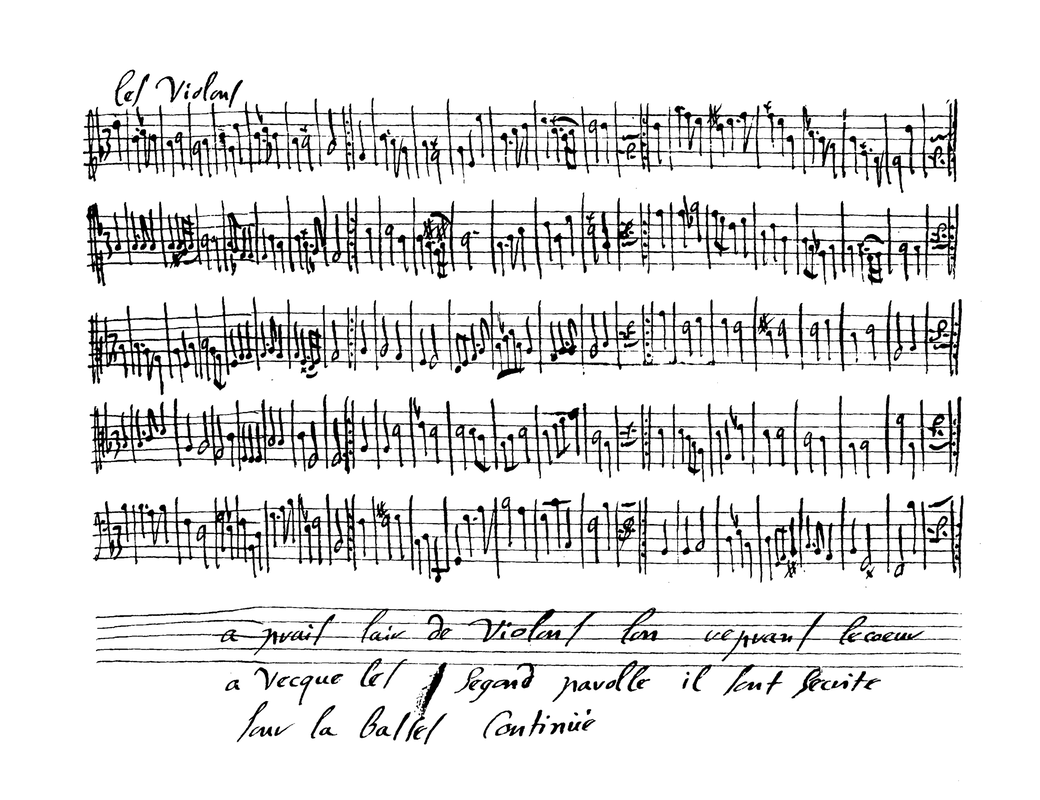 les Violons
a prais lair de Violons lon reprans lecoeur
a Vecque les segond parolle il sont secrite
sur la basses Continüe